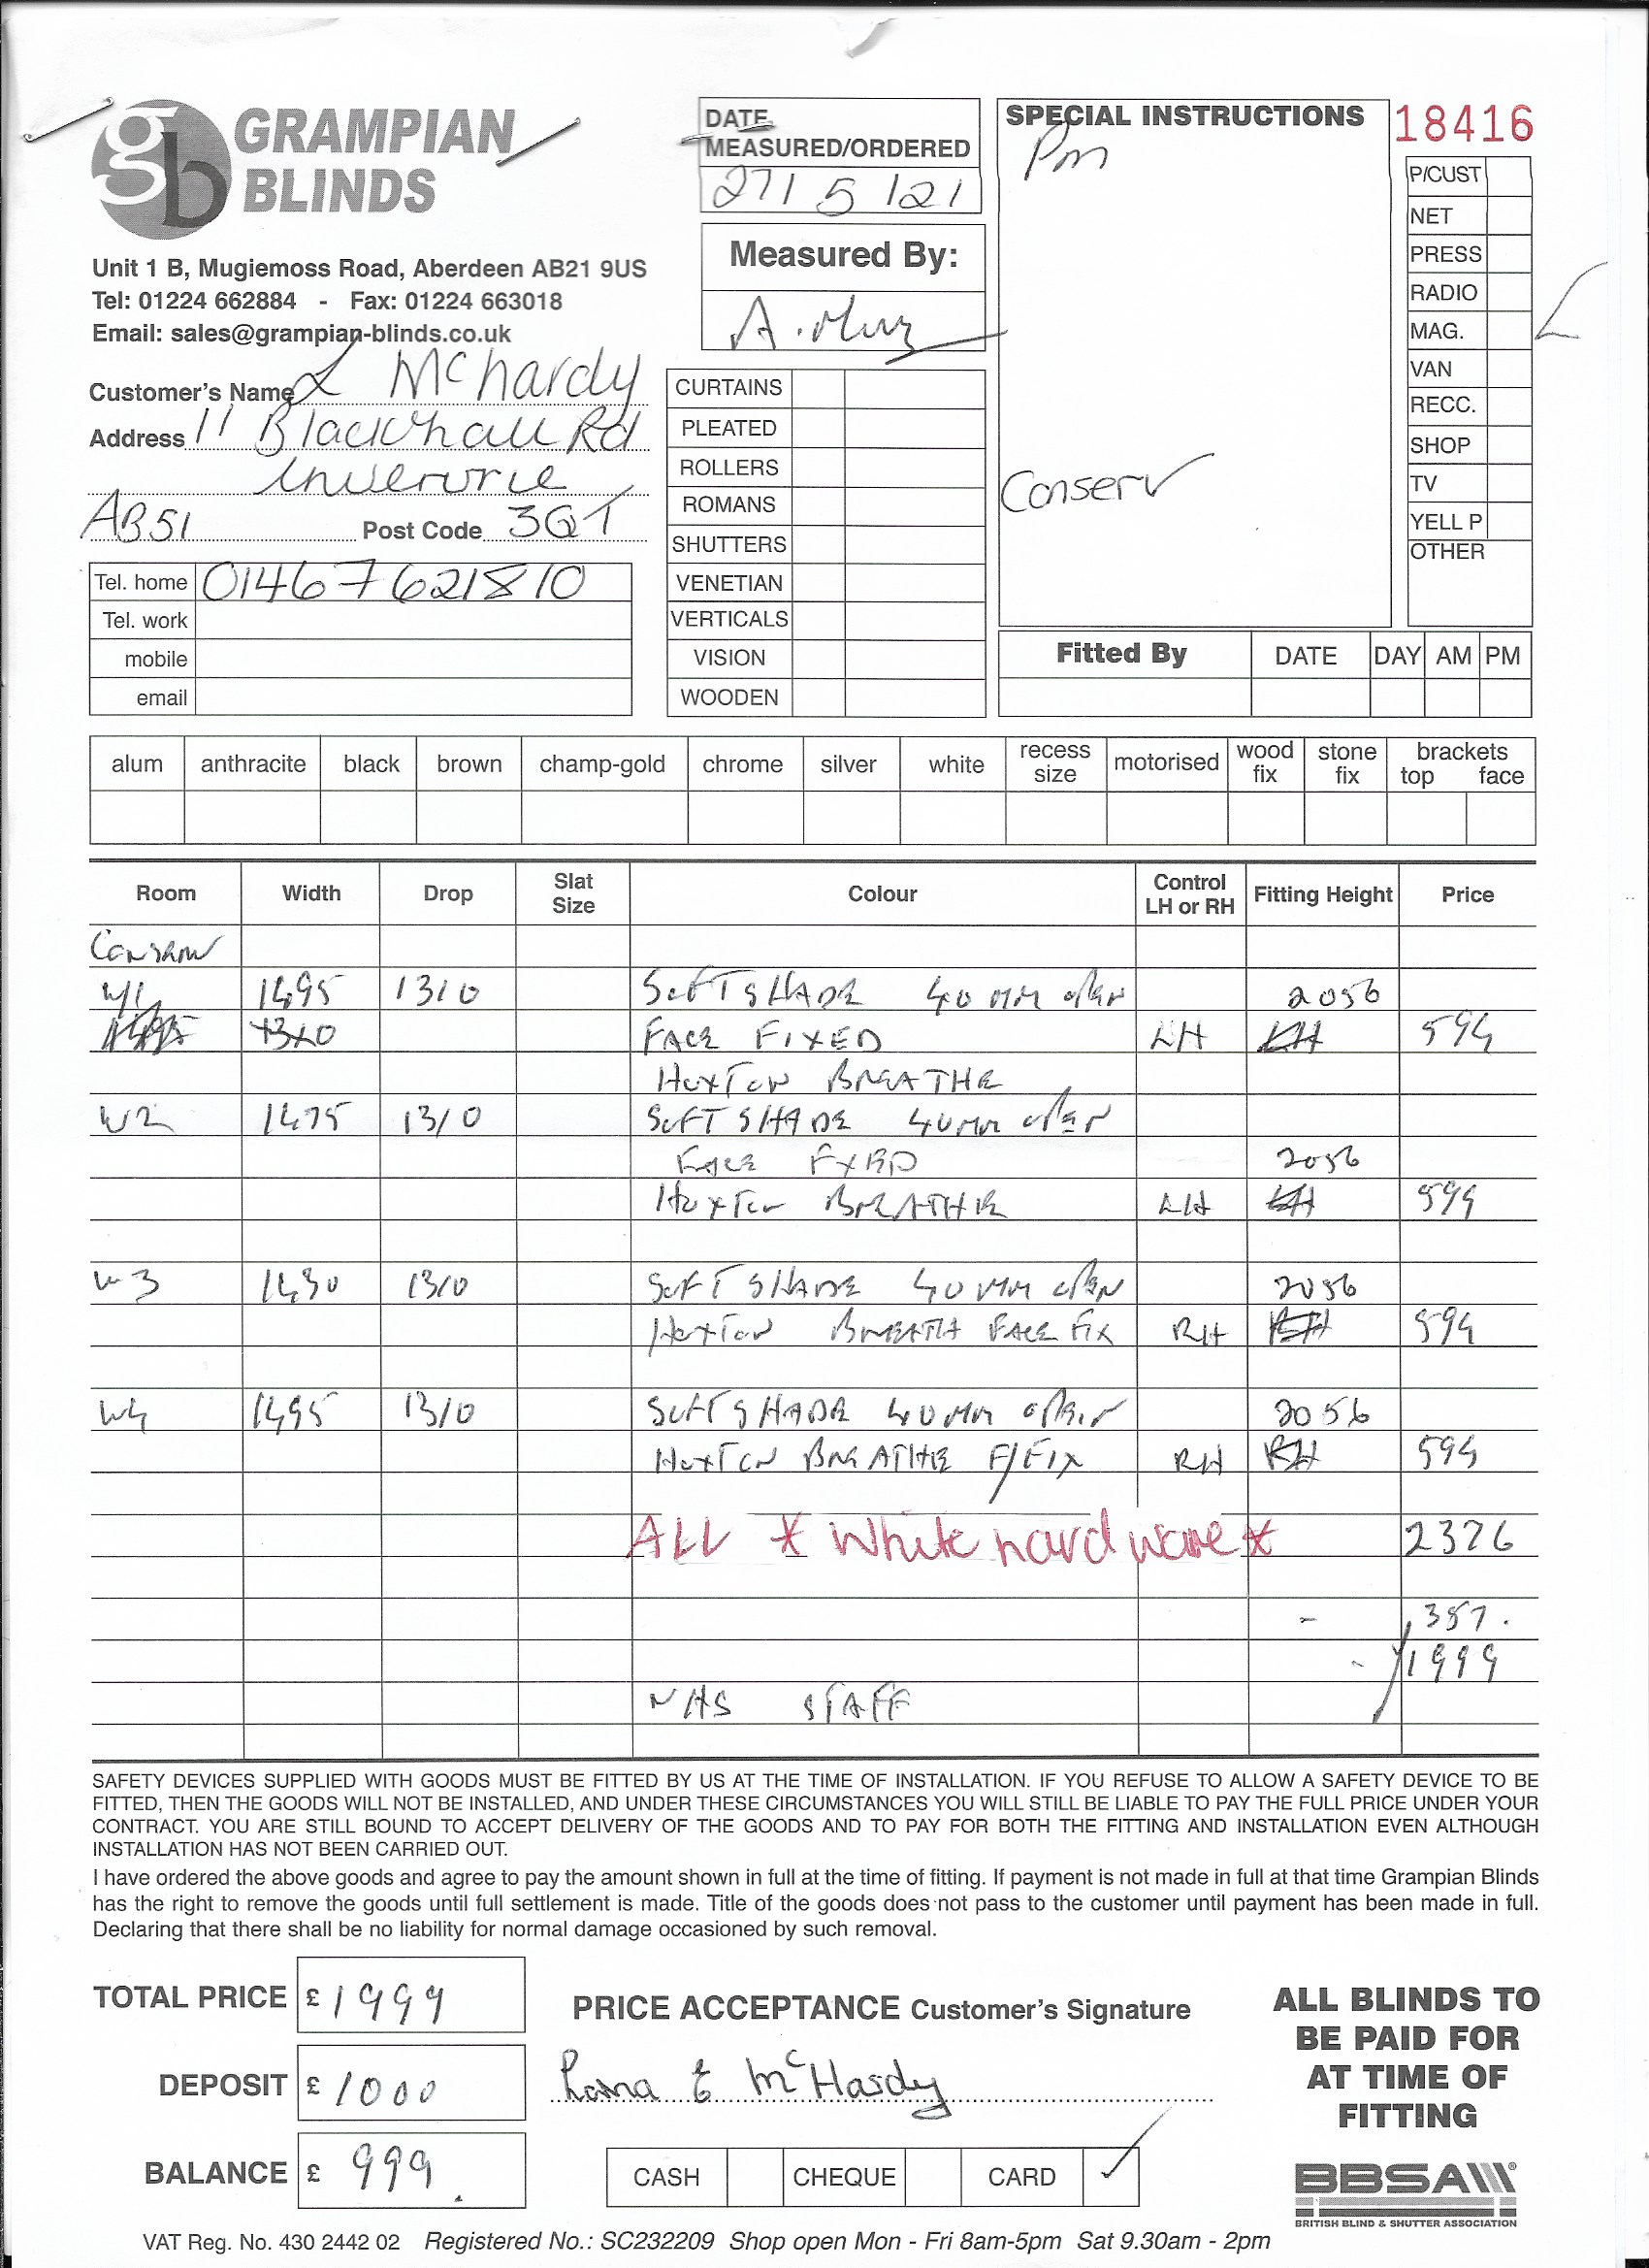 GRAMPIAN
BLINDS
Unit 1 B, Mugiemoss Road, Aberdeen AB21 9US
Tel: 01224 662884 - Fax: 01224 663018
Email: sales@grampian-blinds.co.uk
Customer's Name L McHardy
Address 11 Blackhall Rd
Inverurie
AB51 Post Code 3QT
Tel. home 01467 621810
Tel. work
mobile
email
DATE
MEASURED/ORDERED
27/5/21
Measured By:
CURTAINS
PLEATED
ROLLERS
ROMANS
SHUTTERS
VENETIAN
VERTICALS
VISION
WOODEN
SPECIAL INSTRUCTIONS
Pm
Conserv
18416
P/CUST
NET
PRESS
RADIO
MAG.
VAN
RECC.
SHOP
TV
YELL P
OTHER
Fitted By DATE DAY AM PM
alum anthracite black brown champ-gold chrome silver white recess size motorised wood fix stone fix brackets top face
Room Width Drop Slat Size Colour Control LH or RH Fitting Height Price
Conserv
W1 1495 1310 SOFTSHADE 40MM OPEN 2056
1310 FACE FIXED LH LH 594
HOXTON BREATHE
W2 1475 1310 SOFTSHADE 40MM OPEN
FACE FIXED 2056
HOXTON BREATHE LH LH 594
W3 1430 1310 SOFTSHADE 40MM OPEN 2056
HOXTON BREATH FACE FIX RH RH 594
W4 1495 1310 SOFTSHADE 40MM OPEN 2056
HOXTON BREATHE F/FIX RH RH 594
ALL * White hardware * 2376
- 357.
- 1999
NHS STAFF
SAFETY DEVICES SUPPLIED WITH GOODS MUST BE FITTED BY US AT THE TIME OF INSTALLATION. IF YOU REFUSE TO ALLOW A SAFETY DEVICE TO BE
FITTED, THEN THE GOODS WILL NOT BE INSTALLED, AND UNDER THESE CIRCUMSTANCES YOU WILL STILL BE LIABLE TO PAY THE FULL PRICE UNDER YOUR
CONTRACT. YOU ARE STILL BOUND TO ACCEPT DELIVERY OF THE GOODS AND TO PAY FOR BOTH THE FITTING AND INSTALLATION EVEN ALTHOUGH
INSTALLATION HAS NOT BEEN CARRIED OUT.
I have ordered the above goods and agree to pay the amount shown in full at the time of fitting. If payment is not made in full at that time Grampian Blinds
has the right to remove the goods until full settlement is made. Title of the goods does not pass to the customer until payment has been made in full.
Declaring that there shall be no liability for normal damage occasioned by such removal.
TOTAL PRICE £ 1999
DEPOSIT £ 1000
BALANCE £ 999.
PRICE ACCEPTANCE Customer's Signature
E McHardy
CASH CHEQUE CARD ✓
ALL BLINDS TO
BE PAID FOR
AT TIME OF
FITTING
BBSA
BRITISH BLIND & SHUTTER ASSOCIATION
VAT Reg. No. 430 2442 02 Registered No.: SC232209 Shop open Mon - Fri 8am-5pm Sat 9.30am - 2pm